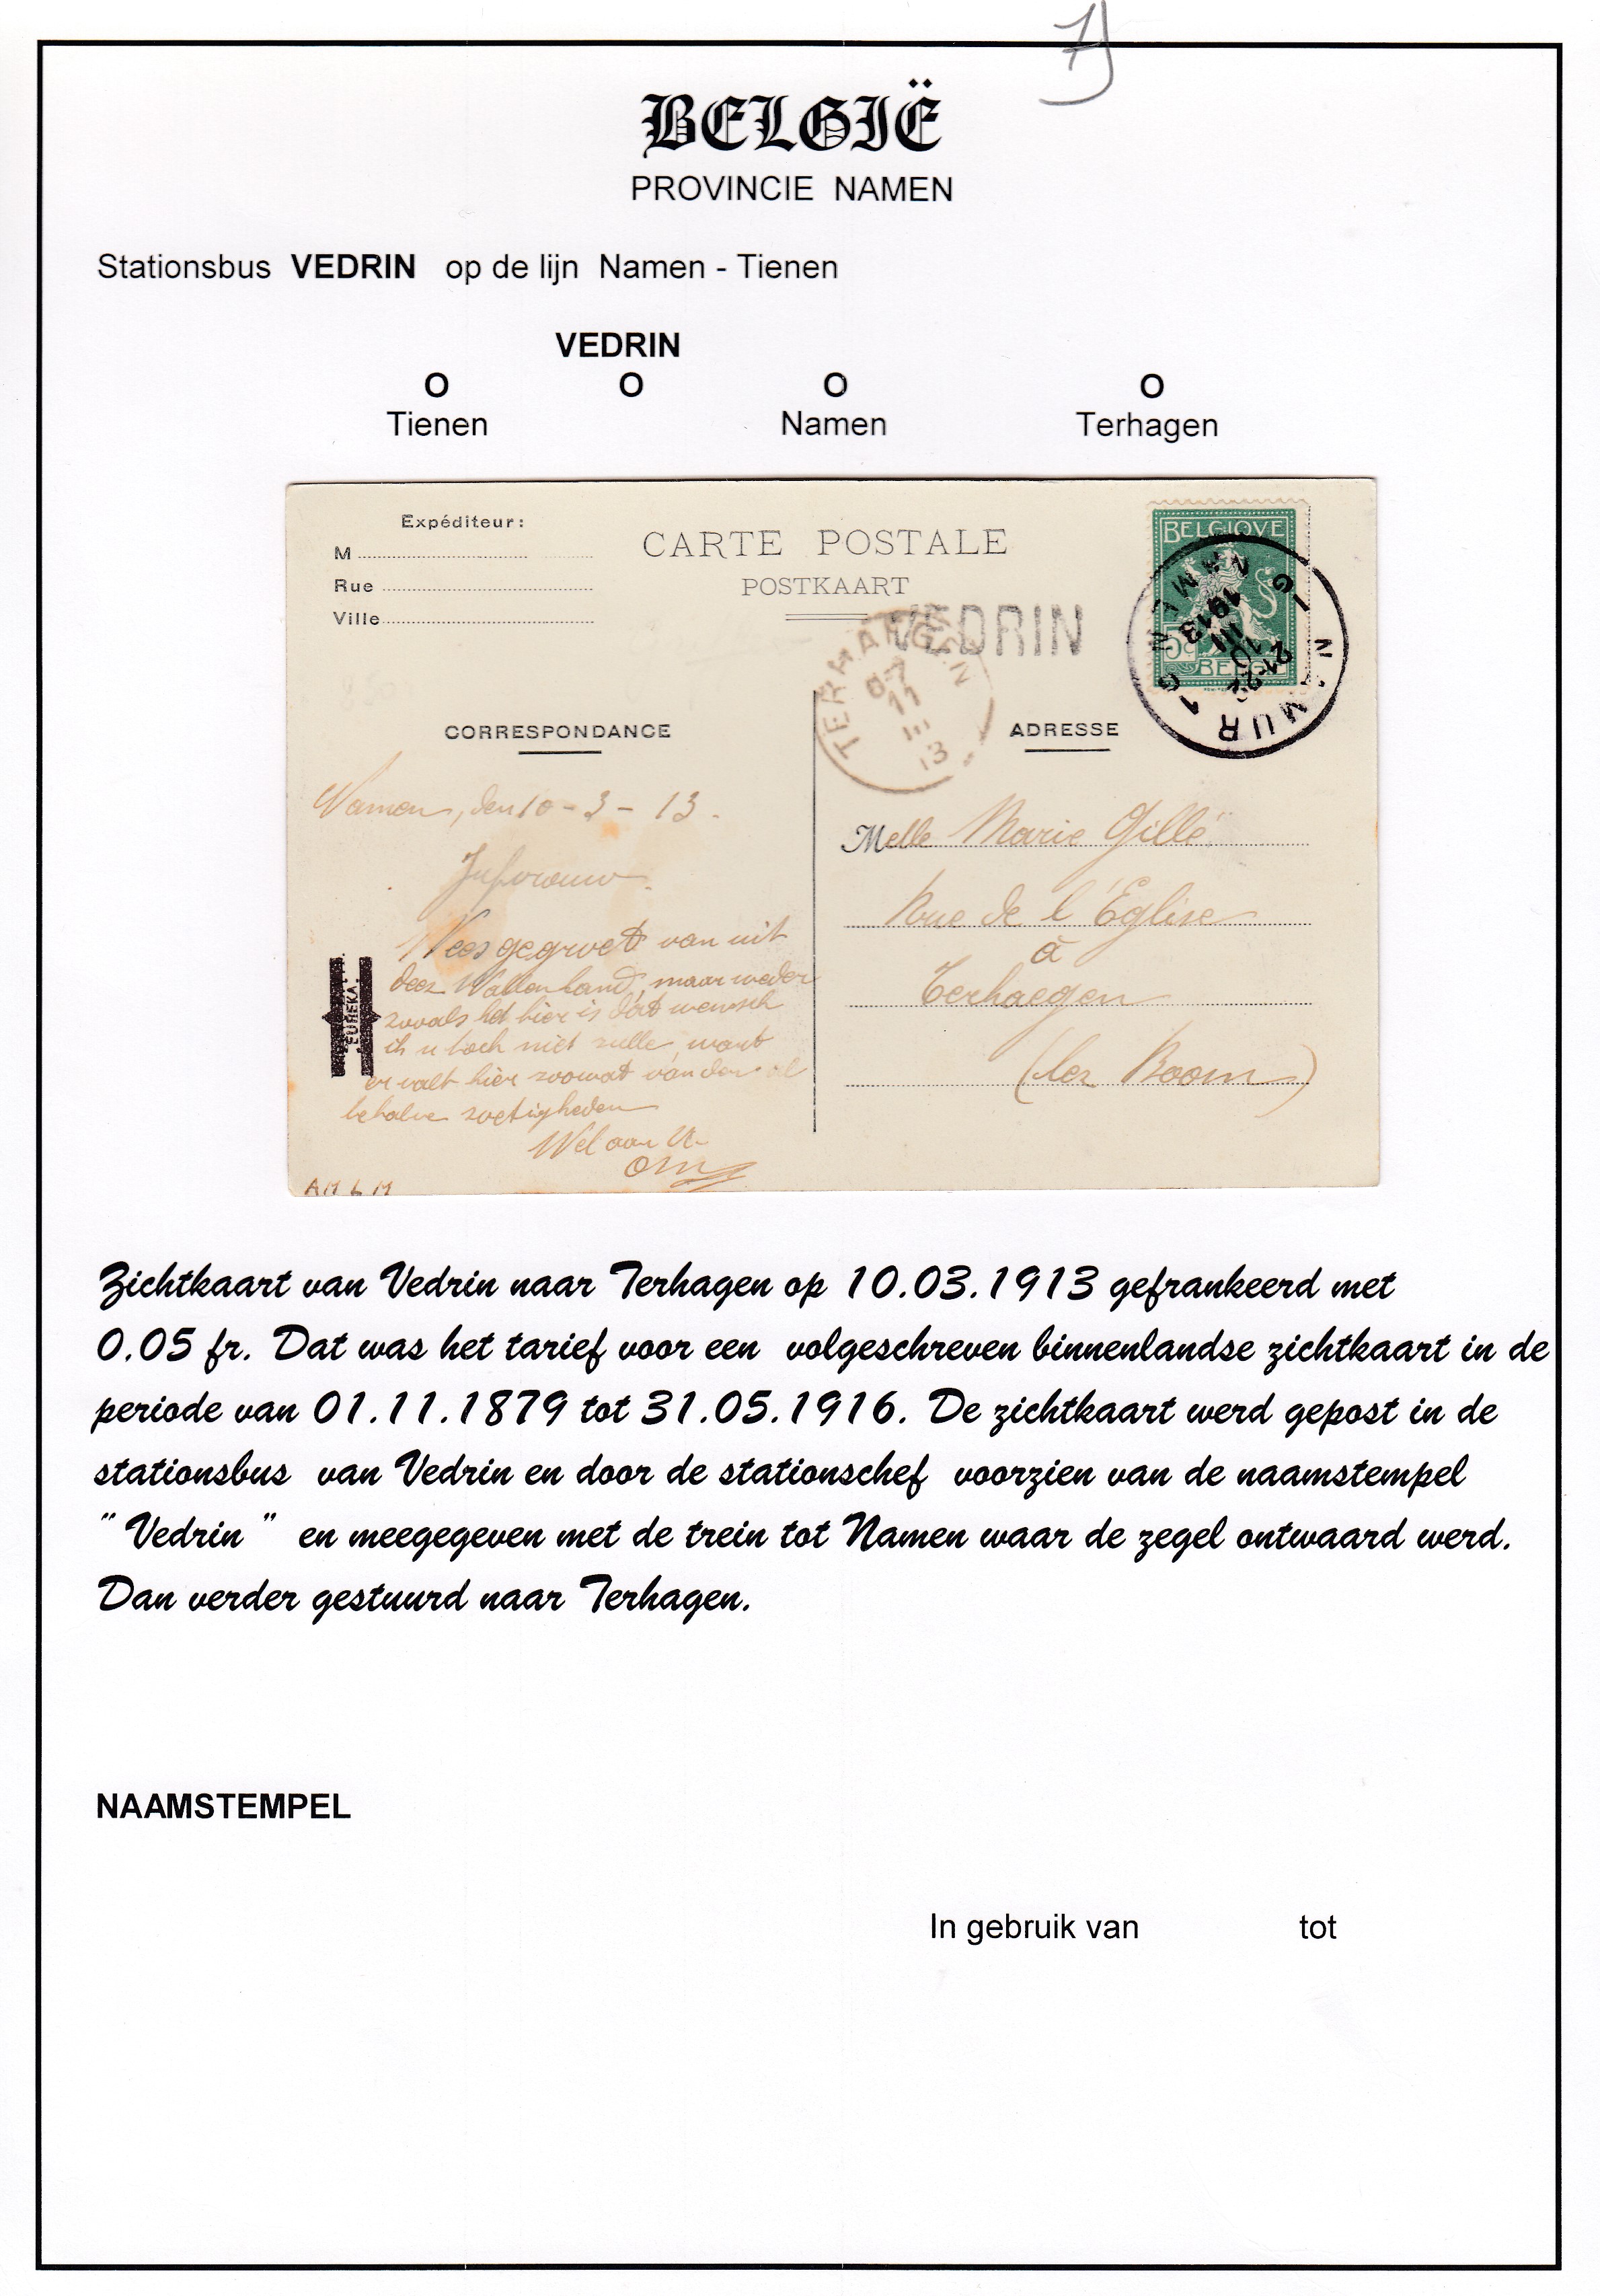 BELGIË
PROVINCIE NAMEN
Stationsbus VEDRIN op de lijn Namen - Tienen
VEDRIN
O O O O
Tienen Namen Terhagen
Expéditeur:
M
Rue
Ville
CARTE POSTALE
POSTKAART
VEDRIN
BELGIQVE
5c
BELGIË
NAMUR 1 G
1 G NAMEN
21-22
10 III
1913
TERHAEGEN
11 III 13
CORRESPONDANCE
ADRESSE
Namen, den 10 - 3 - 13.
Jufvrouw.
Wees gegroet van uit
deez Wallenland, maar weder
zooals het hier is dat wensch
ik u toch niet zulle, want
er valt hier zoowat van den al
behalve zoetigheden
Wel aan U.
EUREKA.
AMLM
Melle Marie Gillé
Rue de l'Eglise
à
Terhaegen
(lez Boom)
Zichtkaart van Vedrin naar Terhagen op 10.03.1913 gefrankeerd met
0.05 fr. Dat was het tarief voor een volgeschreven binnenlandse zichtkaart in de
periode van 01.11.1879 tot 31.05.1916. De zichtkaart werd gepost in de
stationsbus van Vedrin en door de stationschef voorzien van de naamstempel
" Vedrin " en meegegeven met de trein tot Namen waar de zegel ontwaard werd.
Dan verder gestuurd naar Terhagen.
NAAMSTEMPEL
In gebruik van tot